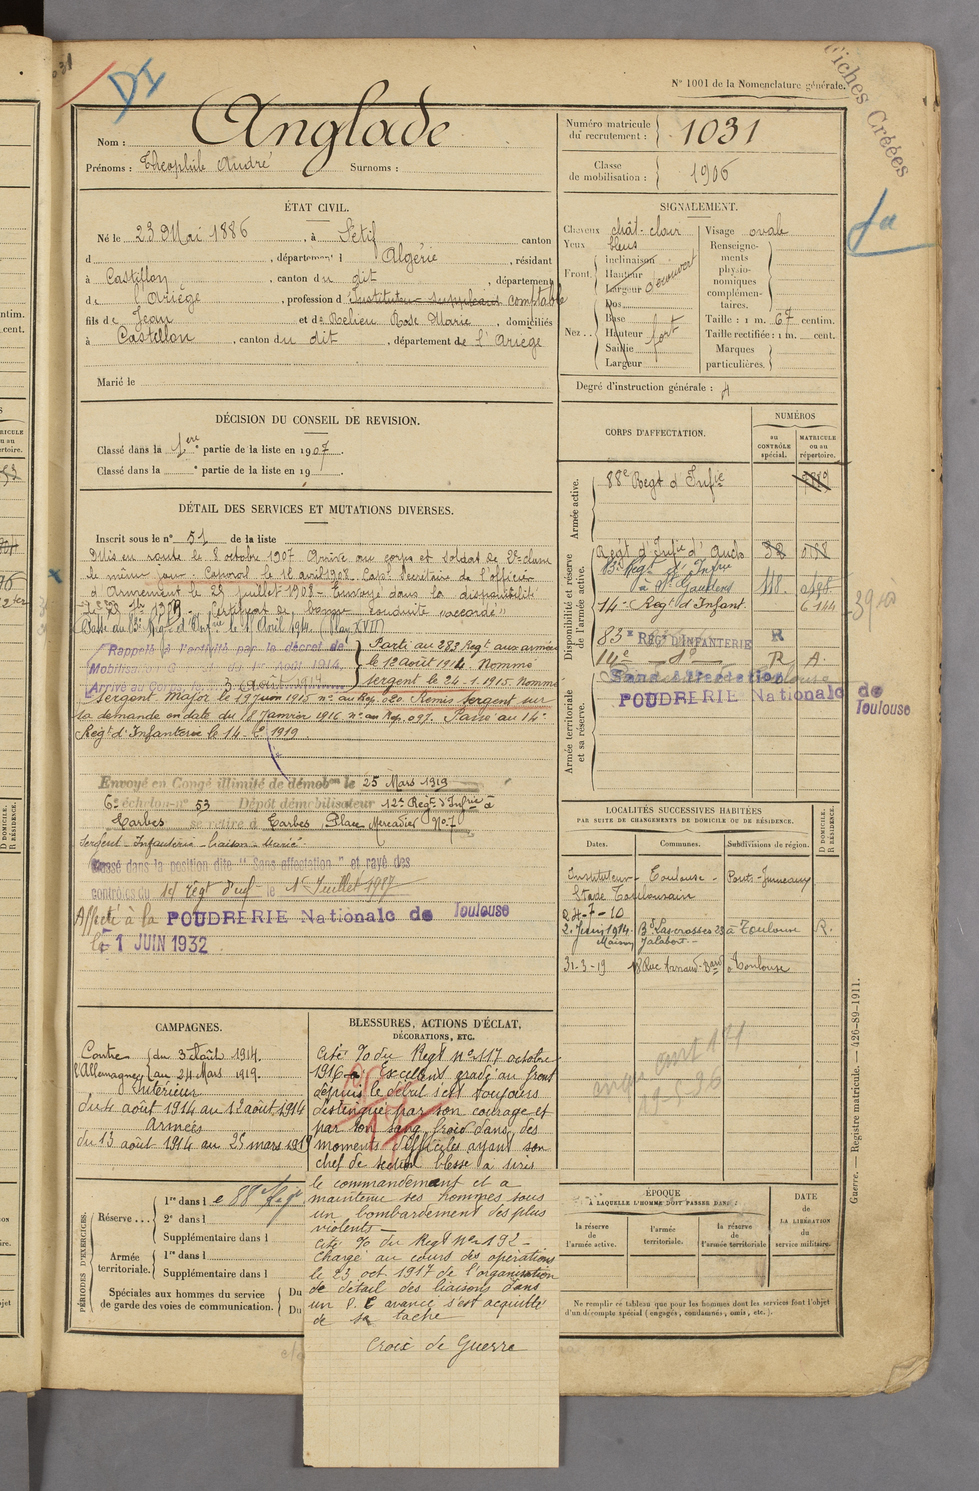 N° 1001 de la Nomenclature générale.
Fiches Créées
Nom : Anglade
Prénoms : Théophile André Surnoms :
Numéro matricule du recrutement : 1031
Classe de mobilisation : 1906
ÉTAT CIVIL.
Né le 23 Mai 1886, à Sétif canton
d , département d Algérie, résidant
à Castillon, canton du dit, département
de l'Ariège, profession d'Instituteur suppléant comptable
fils de Jean et de Relieu Rose Marie, domiciliés
à Castillon, canton du dit, département de l'Ariège
Marié le
SIGNALEMENT.
Cheveux chât-clair
Yeux bleus
Front. Inclinaison Hauteur Largeur découvert
Nez Dos Base Hauteur Saillie Largeur fort
Visage ovale
Renseignements physionomiques complémentaires.
Taille : 1 m. 67 centim.
Taille rectifiée : 1 m. cent.
Marques particulières.
Degré d'instruction générale : 4
DÉCISION DU CONSEIL DE REVISION.
Classé dans la 1ère partie de la liste en 1907.
Classé dans la partie de la liste en 19
DÉTAIL DES SERVICES ET MUTATIONS DIVERSES.
Inscrit sous le n° 51 de la liste
Mis en route le 8 octobre 1907 Arrivé au corps et soldat de 2e classe
le même jour. Caporal le 12 avril 1908. Cap. Secrétaire de l'officier
d'Armement le 25 juillet 1908. Envoyé dans la disponibilité
Certificat de bonne conduite "accordé"
Passé au Régt d'Infie le 1er Avril 1914 (Plan XVII)
Rappelé à l'activité par le décret de
Mobilisation G du 1er Août 1914.
Arrivé au Corps, le 3 Août 1914
Parti au 283 Régt aux armées
le 12 août 1914. Nommé
sergent le 24-1-1915. Nommé
Sergent Major le 19 juin 1915 Remis Sergent sur
sa demande en date du 18 Janvier 1916 Passé au 14e
Régt d'Infanterie le 14 1919
Envoyé en Congé illimité de démobon le 25 Mars 1919
6e échelon n° 53 Dépôt démobilisateur 12e Regt d'Infie à
Tarbes se retire à Tarbes Place Mercadier N° 7
Sergent - Infanterie - liaison - Marié
Classé dans la position dite "Sans affectation" et rayé des
contrôles du 14 Régt d'inf le 1er Juillet 1917
Affecté à la POUDRERIE Nationale de Toulouse
le 1 JUIN 1932
CORPS D'AFFECTATION.
NUMÉROS
au CONTRÔLE spécial.
MATRICULE ou au répertoire.
Armée active.
88e Regt d'Infie
Disponibilité et réserve de l'armée active.
Régt d'Infie d'Auch
Régt d'Infie
à St Gaudens 118.
14e Regt d'Infant. 6144
83e RÉGt D'INFANTERIE R
14e do R A.
Armée territoriale et sa réserve.
Sans affectation
POUDRERIE Nationale de Toulouse
LOCALITÉS SUCCESSIVES HABITÉES
PAR SUITE DE CHANGEMENTS DE DOMICILE OU DE RÉSIDENCE.
Dates. Communes. Subdivisions de région. D DOMICILE. R RÉSIDENCE.
Instituteur - Toulouse - Ponts-Jumeaux
Stade Toulousain
24-7-10
2. Juin 1914 Bd Lascrosses 29 à Toulouse R.
Maison Jalabert
31-3-19 18 Rue Arnaud-Bard Toulouse
19-5-26
CAMPAGNES.
Contre l'Allemagne du 3 Août 1914.
au 24 Mars 1919.
Intérieur
du 4 août 1914 au 12 août 1914
Armées
du 13 août 1914 au 25 mars 1919
BLESSURES, ACTIONS D'ÉCLAT, DÉCORATIONS, ETC.
Cité % du Regt N° 117 octobre
1916. Excellent gradé au front
depuis le début s'est toujours
distingué par son courage et
par son sang froid dans des
moments difficiles ayant son
chef de section blessé a pris
le commandement et a
maintenu ses hommes sous
un bombardement des plus
violents
Cité % du Regt N° 192 -
Chargé au cours des opérations
le 23 oct 1917 de l'organisation
de détail des liaisons dans
un P. C avancé s'est acquitté
de sa tache
Croix de Guerre
PÉRIODES D'EXERCICES.
Réserve 1re dans le 88e Régt
2e dans l
Supplémentaire dans l
Armée territoriale. 1re dans l
Supplémentaire dans l
Spéciales aux hommes du service de garde des voies de communication. Du
Du
ÉPOQUE
À LAQUELLE L'HOMME DOIT PASSER DANS :
la réserve de l'armée active.
l'armée territoriale.
la réserve de l'armée territoriale
DATE DE LA LIBÉRATION du service militaire.
Ne remplir ce tableau que pour les hommes dont les services font l'objet
d'un décompte spécial (engagés, condamnés, omis, etc.).
Guerre. — Registre matricule. — 426-89-1911.